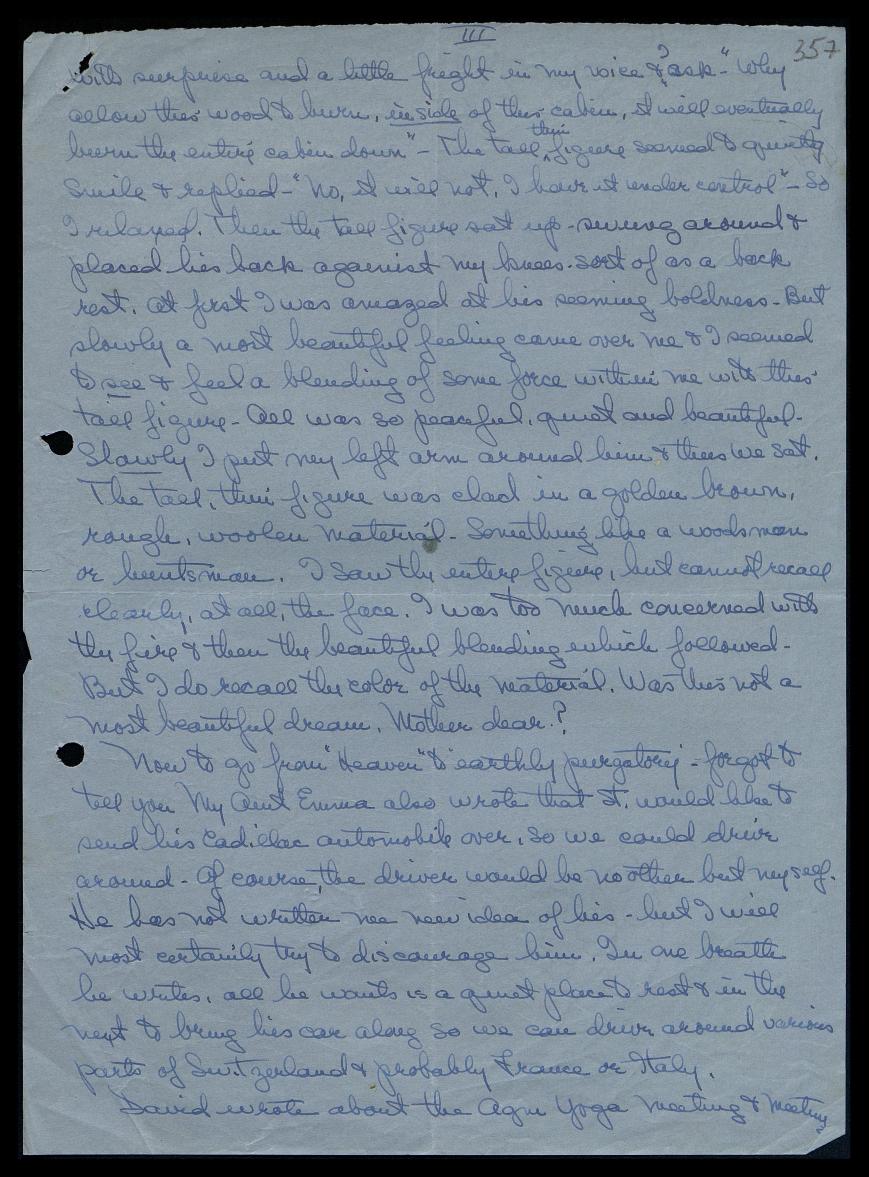 III
357
with surprise and a little fright in my voice & ask - "Why
allow this wood to burn, inside of this cabin, it will eventually
burn the entire cabin down" - The tall, thin figure seemed to quietly
smile & replied - "No, it will not, I have it under control" - So
I relaxed. Then the tall figure sat up - swung around &
placed his back against my knees - sort of as a back
rest. At first I was amazed at his seeming boldness - But
slowly a most beautiful feeling came over me & I seemed
to see & feel a blending of some force within me with this
tall figure - All was so peaceful, quiet and beautiful -
Slowly I put my left arm around him & thus we sat.
The tall, thin figure was clad in a golden brown,
rough, woolen material - Something like a woodsman
or huntsman. I saw the entire figure, but cannot recall
clearly, at all, the face. I was too much concerned with
the fire & then the beautiful blending which followed -
But I do recall the color of the material. Was this not a
most beautiful dream, Mother dear?
Now to go from "Heaven" to "earthly purgatory" - forgot to
tell you My Aunt Emma also wrote that St. would like to
send his Cadillac automobile over, so we could drive
around - Of course, the driver would be no other but myself.
He has not written me new idea of his - but I will
most certainly try to discourage him. In one breath
he writes, all he wants is a quiet place to rest & in the
next to bring his car along so we can drive around various
parts of Switzerland & probably France or Italy.
David wrote about the Agni Yoga Meeting & meeting